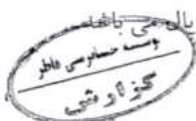 ریال می باشد
موسسه حسابرسی فاطر
گزارشی